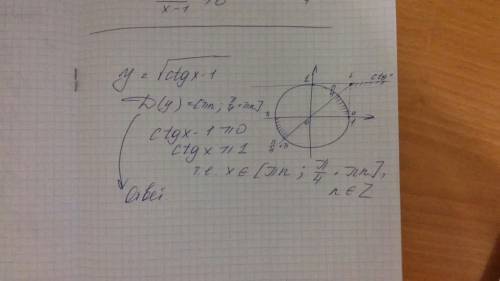 x-1
y = √ctgx-1
D(y) = [πn; π/4+πn]
ctgx-1 ≥ 0
ctgx ≥ 1
т.е. x ∈ [πn ; π/4 + πn],
n ∈ Z
Ответ
1
1
ctg
π
0
π/4
0
1
π/4+π